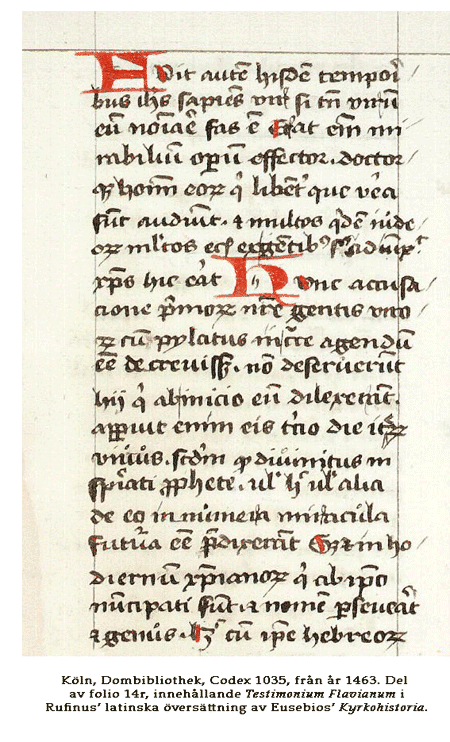 Fuit autē hisdē tempori
bus ihs sapiēs vir si tn̄ virū
eū noīarē fas ē Erat em̄ mi
rabiliū operū effector . doctor
qꝫ hoīm eoꝝ qi libent' que vera
sūt audiūt . & multos qidē iude
oꝝ
xp̄s hic erat Hunc accusa
cione pͥmoꝝ nr̄e gentis viro
ꝝ cū pylatus agendū
eē decreuissꝫ . nō deseruerūt
hii qi abinicio eū dilexerāt .
apparuit enim eis tercio die
viuus . scdm̄ qꝫ diuinitus in
spirati ꝓphete . ul' h' ul' alia
de eo innumera miracula
futura eē p̄dixerāt Sꝫ & in ho
diernū xp̄ianoꝝ qi ab ipo
nūcupati sūt . & nomē p̱seuerat
& genus . cū ipe hebreoꝝ
Köln, Dombibliothek, Codex 1035, från år 1463. Del
av folio 14r, innehållande Testimonium Flavianum i
Rufinus’ latinska översättning av Eusebios’ Kyrkohistoria.